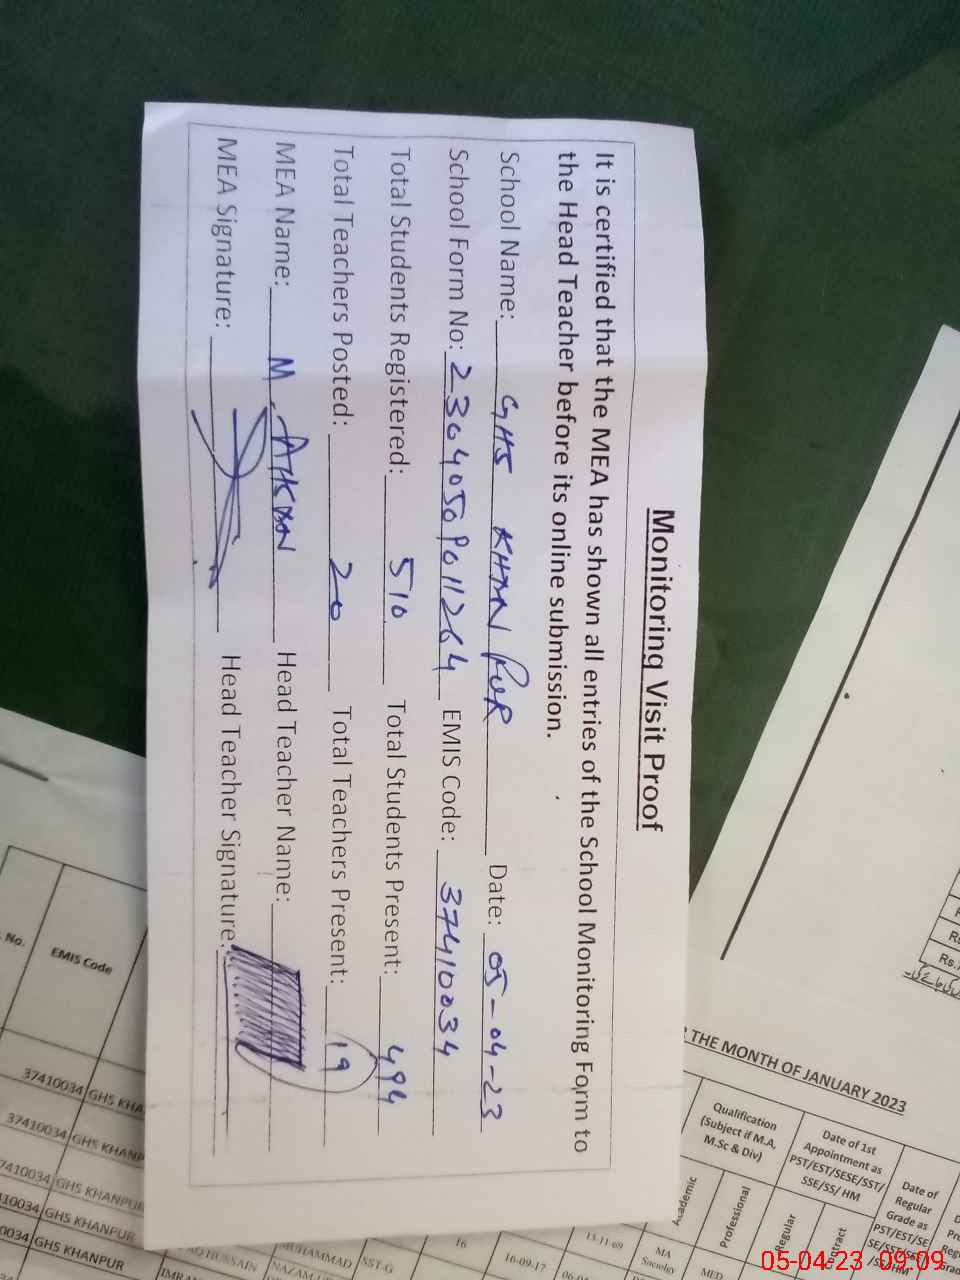 Monitoring Visit Proof
It is certified that the MEA has shown all entries of the School Monitoring Form to
the Head Teacher before its online submission.
School Name: GHS KHAN PUR Date: 05-04-23
School Form No: 23040509011264 EMIS Code: 37410034
Total Students Registered: 510 Total Students Present: 494
Total Teachers Posted: 20 Total Teachers Present: 19
MEA Name: M. Head Teacher Name:
MEA Signature: Head Teacher Signature:
THE MONTH OF JANUARY 2023
Qualification
(Subject if M.A,
M.Sc & Div)
Date of 1st
Appointment as
PST/EST/SESE/SST/
SSE/SS/ HM
Date of
Regular
Grade as
PST/EST/SE
Academic
Professional
Regular
No.
EMIS Code
37410034 GHS KHA
37410034 GHS KHANP
7410034 GHS KHANPUR
10034 GHS KHANPUR
0034 GHS KHANPUR
HUSSAIN
MUHAMMAD
SST-G
16
16-09-17
13-11-09
MA
MED
05-04-23 09:09